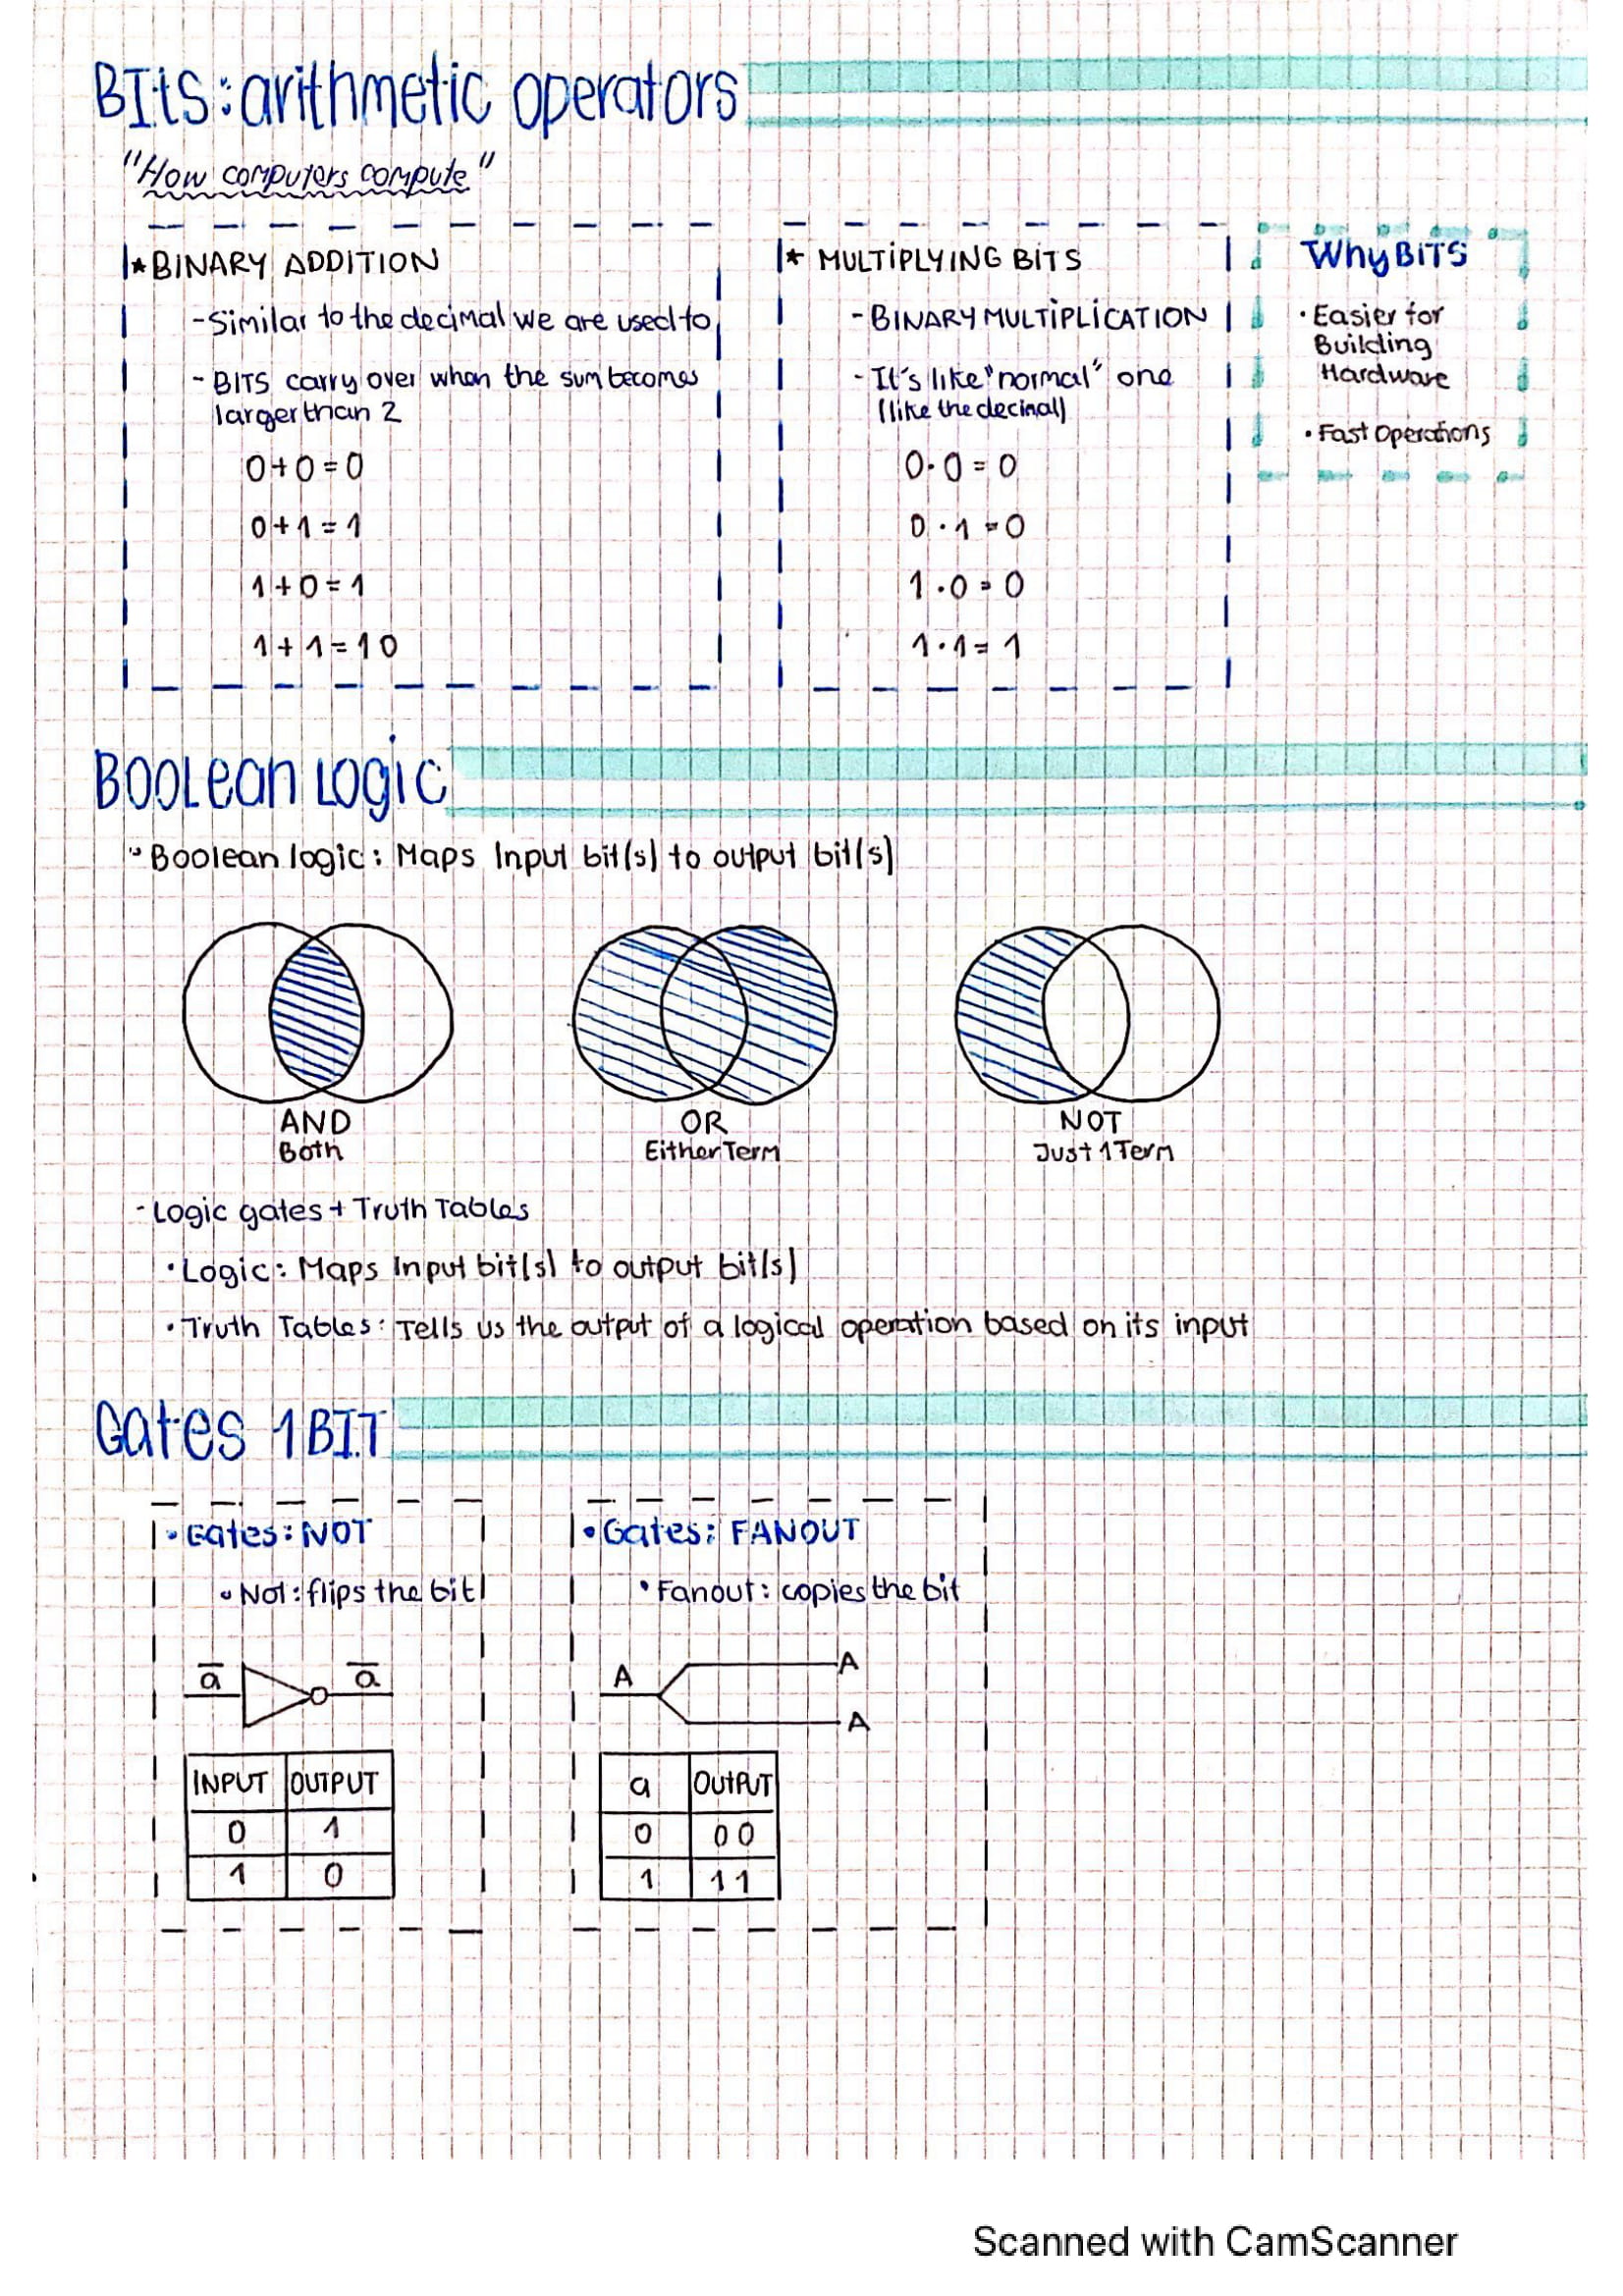 BIts: arithmetic operators
"How computers compute"
* BINARY ADDITION
- Similar to the decimal we are used to
- BITS carry over when the sum becomes
larger than 2
0+0=0
0+1=1
1+0=1
1+1=10
* MULTIPLYING BITS
- BINARY MULTIPLICATION
- It's like "normal" one
(like the decimal)
0·0=0
0·1=0
1·0=0
1·1=1
Why BITS
· Easier for
Building
Hardware
· Fast Operations
BOOLean LOGiC
• Boolean logic: Maps Input bit(s) to output bit(s)
AND
Both
OR
Either Term
NOT
Just 1 Term
- Logic gates + Truth Tables
• Logic: Maps Input bit(s) to output bit(s)
• Truth Tables: Tells us the output of a logical operation based on its input
Gates 1 BIT
• Gates: NOT
• Not: flips the bit
a̅ a̅
INPUT OUTPUT
0 1
1 0
• Gates: FANOUT
• Fanout: copies the bit
A A
A
a OUTPUT
0 00
1 11
Scanned with CamScanner